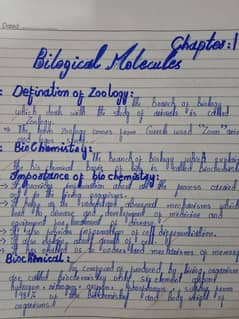 Dated
Chapter: 1
Bilogical Molecules
Defination of Zoology:
The branch of Biology
which deals with the study of animals is called
Zoology.
→ The term zoology comes from Greek word "Zoon"
BioChemistry:
The branch of biology which explains
the bio chemical basis of life is called biochemistry
Importance of bio chemistry:
→ It provides information about all the process carried
living organism.
→ It help us to abnormal mechanisms which
lead to disease and development of medicine and
for treatment of disease.
→ It also provides information of cell differentiation.
→ It also explain about growth of cell.
→ It has enabled us to understand mechanisms of memory
Biochemical:
The compound produced by living organism
are called biochemicals while six element
hydrogen, nitrogen, oxygen, phosphorous, sulphur
up the biochemicals and body weight of
organisms